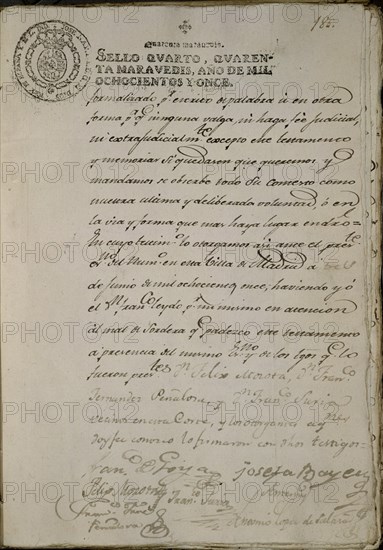 182.
Quarenta maravedis.
SELLO QVARTO, QVAREN-
TA MARAVEDIS, AÑO DE MIL
OCHOCIENTOS Y ONCE.
formalizado por escrito de palabra ú en otra
forma pa. qe ninguna valga, ni haga fee judicial,
ni extrajudicialmte excepto este testamento
y memoria si quedaren que queremos y
mandamos se observe todo su contexto como
nuestra ultima y deliberada voluntad, ó en
la via y forma que mas haya lugar en dro.
En cuyo testim.o lo otorgamos asi ante el pres.te
es.no del Num.o en esta Villa de Madrid a
de Junio de mil ochocientos once; haviendo yo
el Dn. Fran.co leydo por mi mismo en atencion
al mal de Sordera qe padezco este testamento
a presencia del mismo Es.no y de los tgos qe lo
fueron pres.tes Dn. Felix Mosota, Dn. Fran.co
Fernandez Peñalosa, y Dn. Fran.co
vecinos en esta Corte, y los otorgantes
doy fee conozco lo firmaron con dhos testigos
Fran.co de Goya Josefa Bayeu
Felix Mozota
Antonio Lopez de Salazar